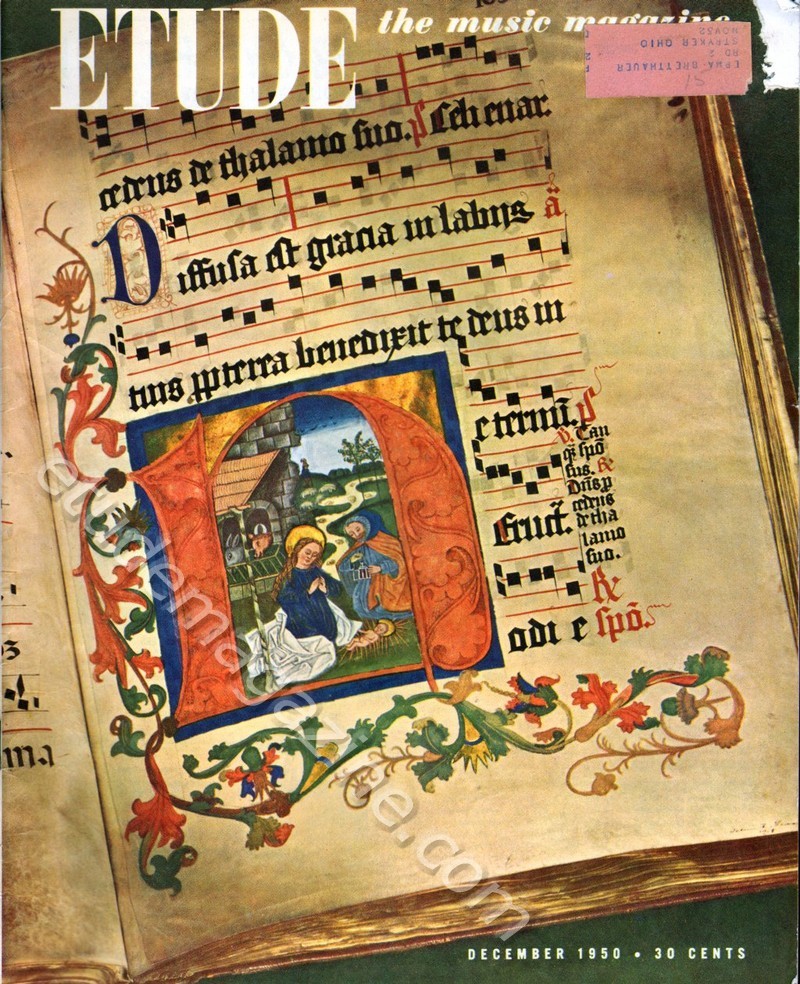 ETUDE the music magazine
ERMA BRETTHAUER
RD 2
STRYKER OHIO
NOV52
15
cedens de thalamo suo. ps Celi enar.
Diffusa est gracia in labijs ā
tuis ppterea benedixit te deus in
eternū. ps
v. Tan
q̄ spō
sus. R
Dn̄s p
cedens
de tha
lamo
suo.
Eruct.
R
odi e spō.
ma
etudemagazine.com
DECEMBER 1950 • 30 CENTS